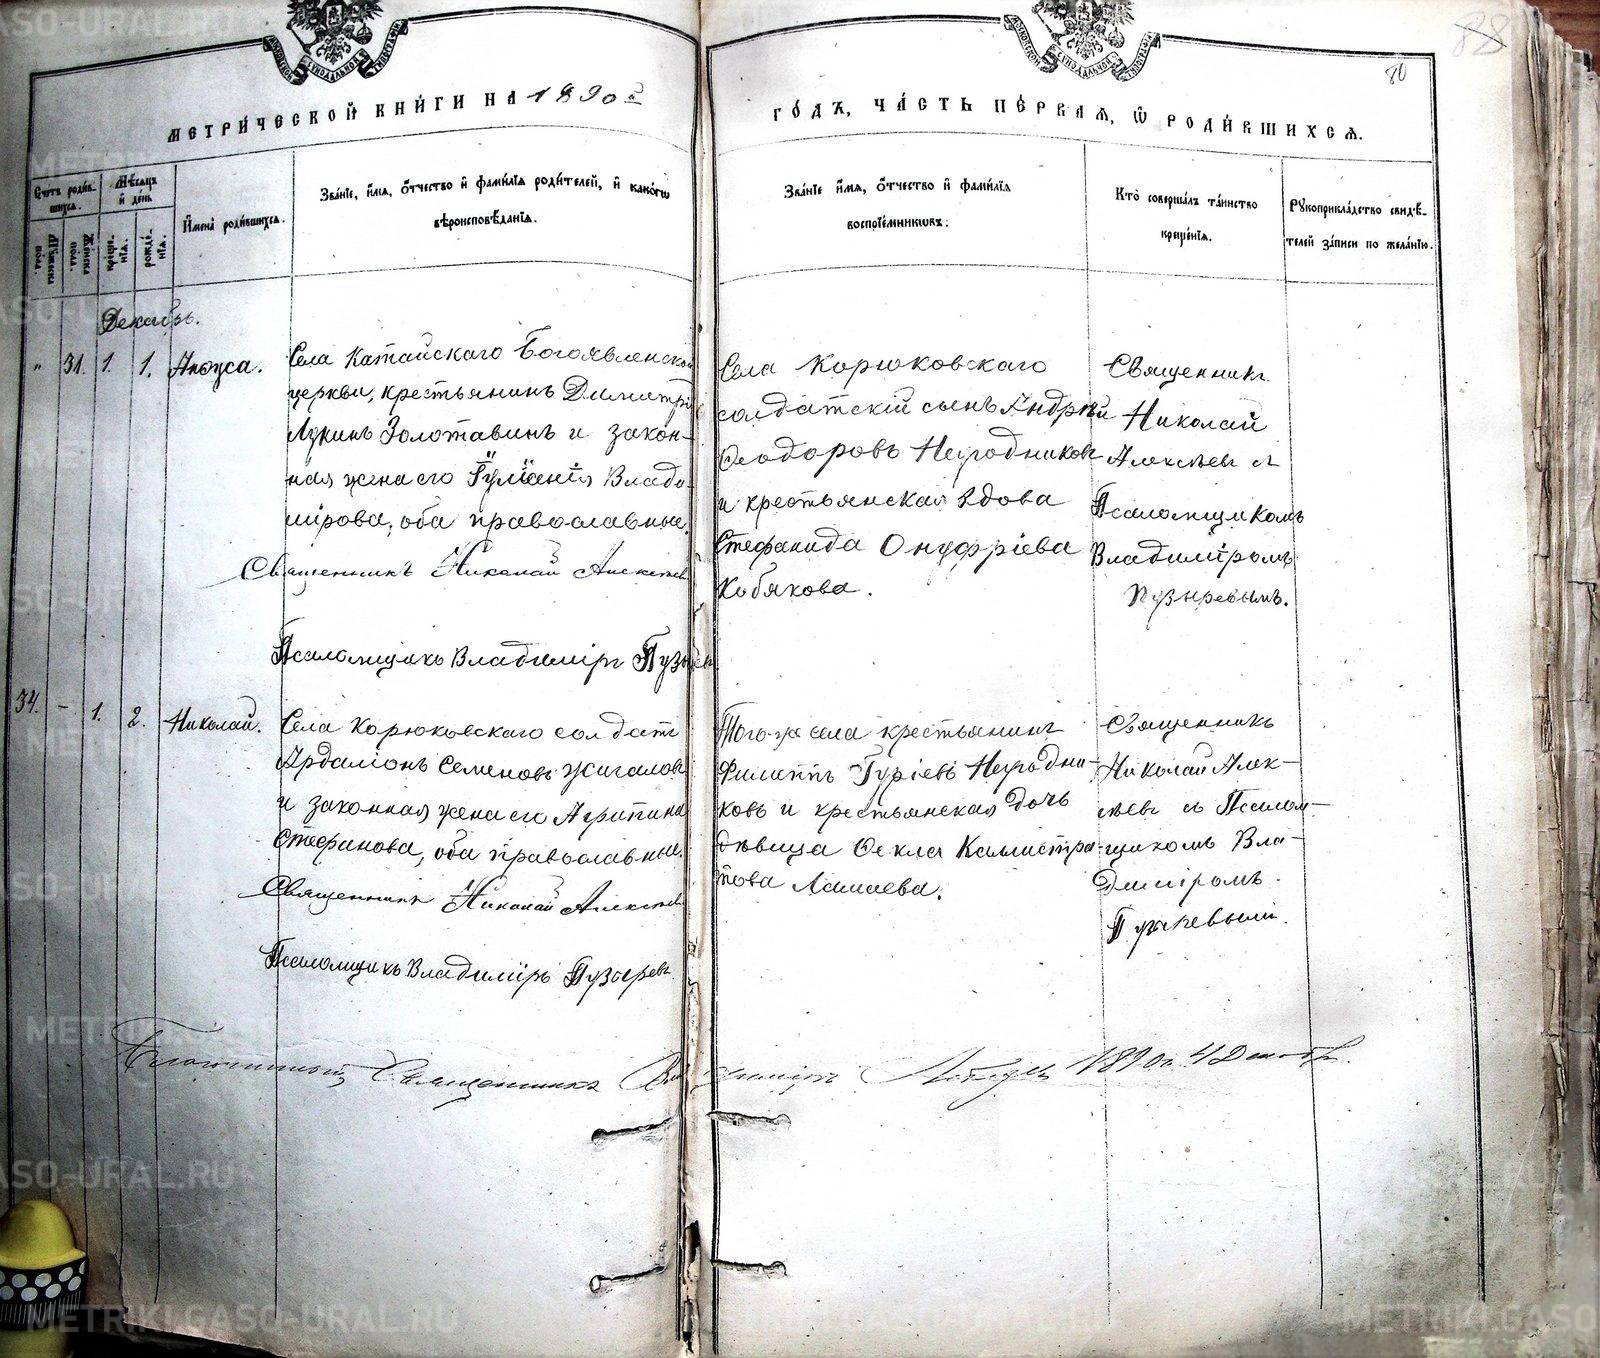 METRIKI.GASO-URAL.RU
МЕТРИ́ЧЕСКОЙ КНИ́ГИ НА 1890 й
ГО́ДЪ, ЧА́СТЬ ПЕ́РВАЯ, Ѿ РОДИ́ВШИХСЯ.
88
80
Счетъ роди́вшихся.
Мѣсяцъ и день
Имена̀ роди́вшихся.
Зва́нїе, и́мя, о́тчество и фами́лїя роди́телей, и како́гѡ
вѣроисповѣ́данїя.
Зва́нїе и́мя, о́тчество и фами́лїя
воспрїе́мникѡвъ.
Кто̀ соверша́лъ та́инство
креще́нїя.
Рꙋкоприкла́дство свидѣ́-
телей за́писи по жела́нїю.
Мꙋжеска по́ла.
Же́нска по́ла.
креще́-нїя.
рожде́-нїя.
Декабрь.
„ 31. 1. 1. Анфуса.
Села Катайскаго Богоявленской
церкви, крестьянинъ Димитрій
Лукинъ Золотавинъ и закон-
ная жена его Іуліанія Влади-
мірова, оба православные.
Священникъ Николай Алексѣевъ
Псаломщикъ Владиміръ Пузыревъ
Села Корюковскаго
солдатскій сынъ Андрей
Ѳеодоровъ Неугодниковъ
и крестьянская вдова
Стефанида Онуфріева
Кобякова.
Священникъ
Николай
Алексѣевъ съ
Псаломщикомъ
Владиміромъ
Пузыревымъ.
34. – 1. 2. Николай.
Села Корюковскаго солдатъ
Ардаліонъ Семеновъ Жигаловъ
и законная жена его Агрипина
Стефанова, оба православные.
Священникъ Николай Алексѣевъ
Псаломщикъ Владиміръ Пузыревъ.
Того-же села крестьянинъ
Филиппъ Гуріевъ Неугодни-
ковъ и крестьянская дочь
дѣвица Ѳекла Каллистра-
това Ламаева.
Священникъ
Николай Алек-
сѣевъ съ Псалом-
щикомъ Вла-
диміромъ
Пузыревымъ.
Благочинный, Священникъ 1890 г. 4 Декабр.